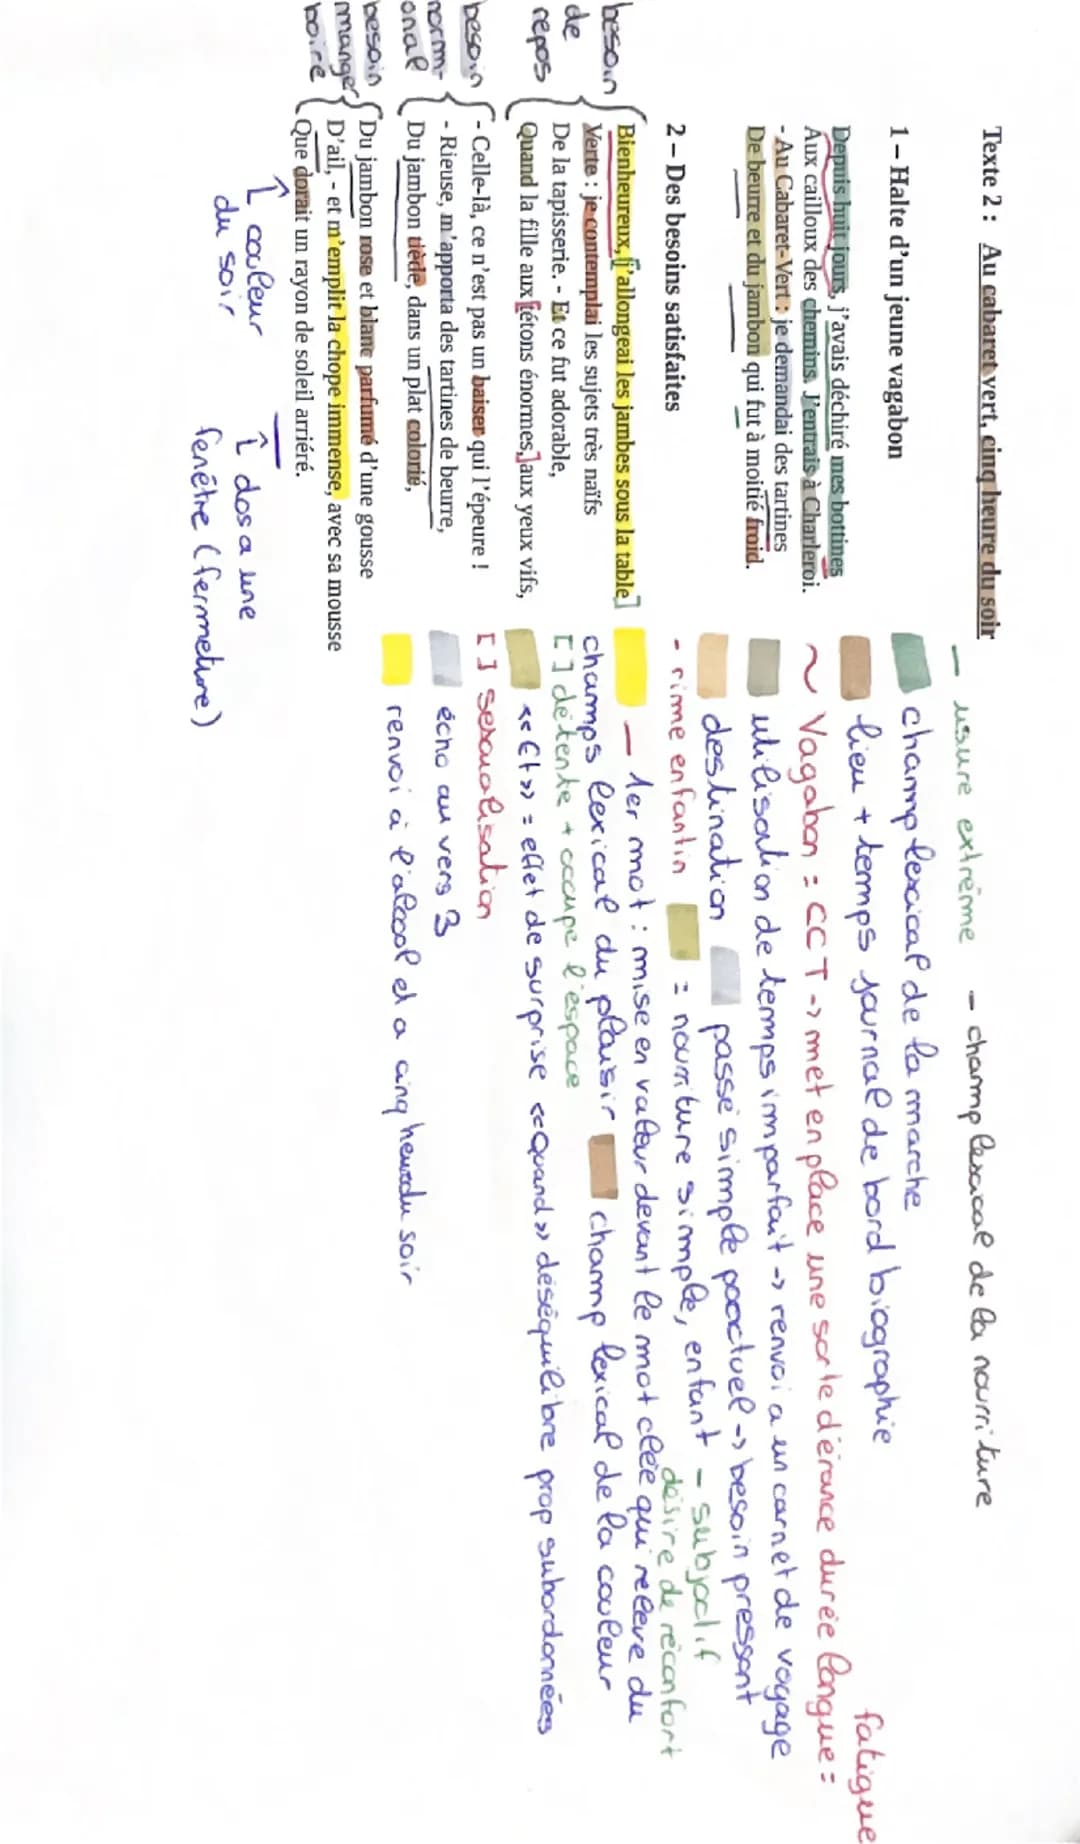 Texte 2 : Au cabaret vert, cinq heure du soir
— usure extrême - champ lexical de la nourriture
1 – Halte d'un jeune vagabon
champ lexical de la marche
Depuis huit jours, j'avais déchiré mes bottines
lieu + temps journal de bord biographie
Aux cailloux des chemins. J'entrais à Charleroi.
~ Vagabon = CCT -> met en place une sorte d'érance durée longue = fatigue
- Au Cabaret-Vert : je demandai des tartines
utilisation de temps imparfait -> renvoi a un carnet de voyage
De beurre et du jambon qui fut à moitié froid.
destination passé simple pooctuel -> besoin pressant
- rime enfantin = nourriture simple, enfant - subjectif
désire de réconfort
2 – Des besoins satisfaites
besoin de repos
Bienheureux, [j'allongeai les jambes sous la table]
— 1er mot : mise en valeur devant le mot clée qui relève du
Verte : je contemplai les sujets très naïfs
champs lexical du plaisir champ lexical de la couleur
De la tapisserie. - Et ce fut adorable,
[ ] détente + occupe l'espace
Quand la fille aux [tétons énormes,] aux yeux vifs,
<<Et>> = effet de surprise <<Quand>> déséquilibre prop subordonnées
besoin norm- onal
- Celle-là, ce n'est pas un baiser qui l'épeure !
[ ] sexualisation
- Rieuse, m'apporta des tartines de beurre,
écho au vers 3
Du jambon tiède, dans un plat colorié,
renvoi à l'alcool et a cinq heure du soir
besoin manger
Du jambon rose et blanc parfumé d'une gousse
boire
D'ail, - et m'emplit la chope immense, avec sa mousse
Que dorait un rayon de soleil arriéré.
↑ couleur du soir
↑ dos a une fenêtre (fermeture)